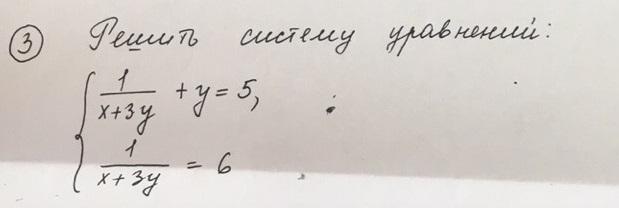 ③ Решить систему уравнений:
{ 1/(x+3y) + y = 5,
1/(x+3y) = 6